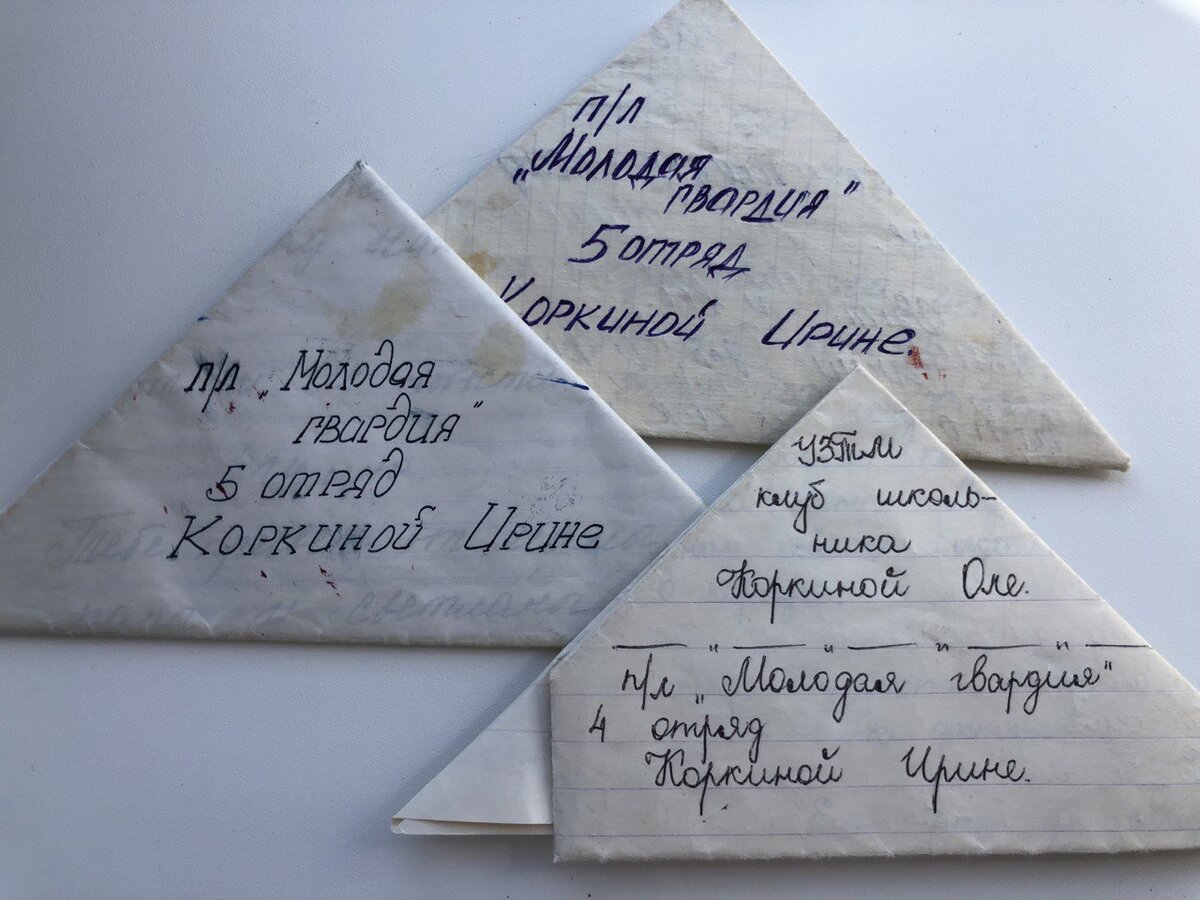 п/л
„Молодая
гвардия"
5 отряд
Коркиной Ирине.
п/л „Молодая
гвардия"
5 отряд
Коркиной Ирине
УЗТМ
клуб школь-
ника
Коркиной Оле.
— „ — „ — „ — „ —
п/л „Молодая гвардия"
4 отряд
Коркиной Ирине.